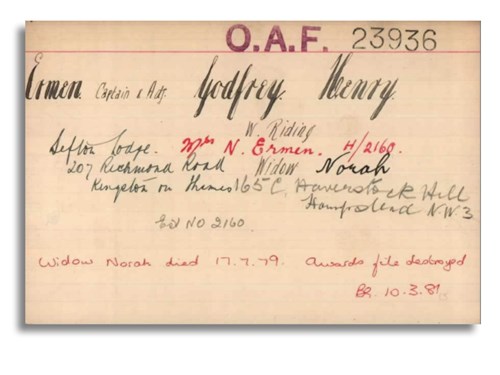 O.A.F. 23936
Ermen. Captain & Adj. Godfrey. Henry.
W. Riding
Sefton Lodge. Mrs N. Ermen. H/2160.
207 Richmond Road Widow Norah
Kingston on Thames 165 C, Haverstock Hill
Hampstead NW3
Ed NO 2160.
Widow Norah died 17.7.79. Awards file destroyed
BR. 10.3.81.